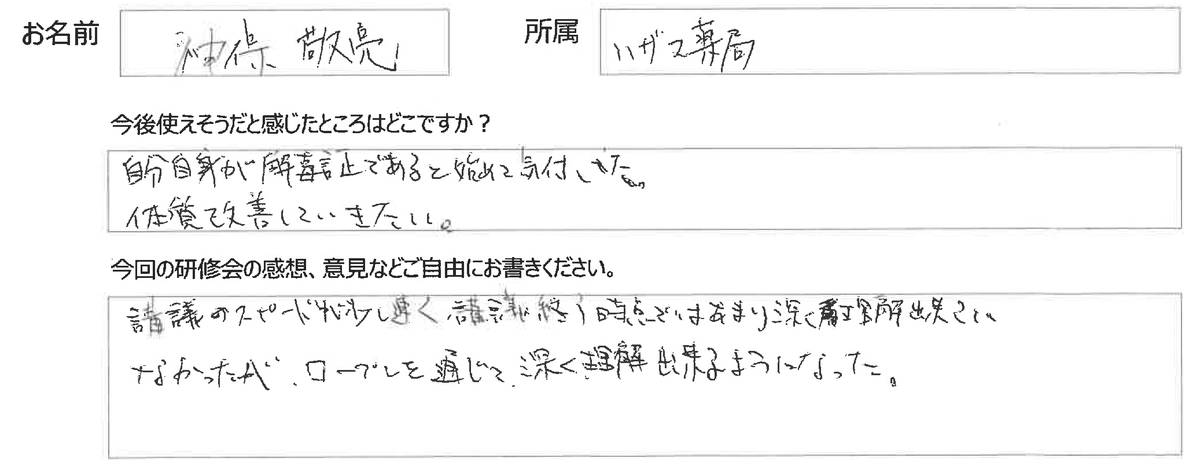 お名前 神保 敬亮
所属 ハザマ薬局
今後使えそうだと感じたところはどこですか？
自分自身が解毒証であると始めて気付きた。
体質改善していきたい。
今回の研修会の感想、意見などご自由にお書きください。
講議のスピードが少し速く、講議が終う時点ではあまり深く理解出来てい
なかったが、ロープレを通じて、深く理解出来るようになった。